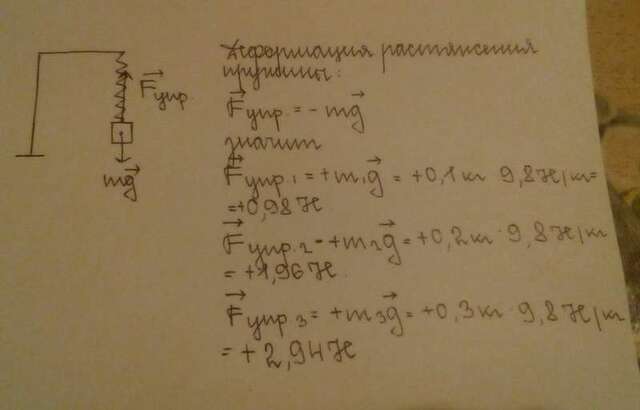 Деформация растяжения
пружины:
F⃗упр = - mg⃗
значит
F⃗упр₁ = +m₁g⃗ = +0,1кг 9,8Н/кг=
=+0,98Н
F⃗упр.₂ = +m₂g⃗ = +0,2кг · 9,8Н/кг
= +1,96Н
F⃗упр 3 = +m₃g⃗ = +0,3кг · 9,8Н/кг
= + 2,94Н
F⃗упр.
mg⃗